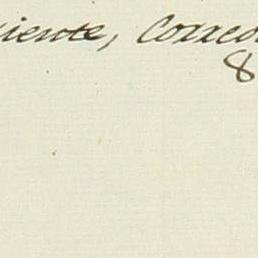 iente, Correo
8